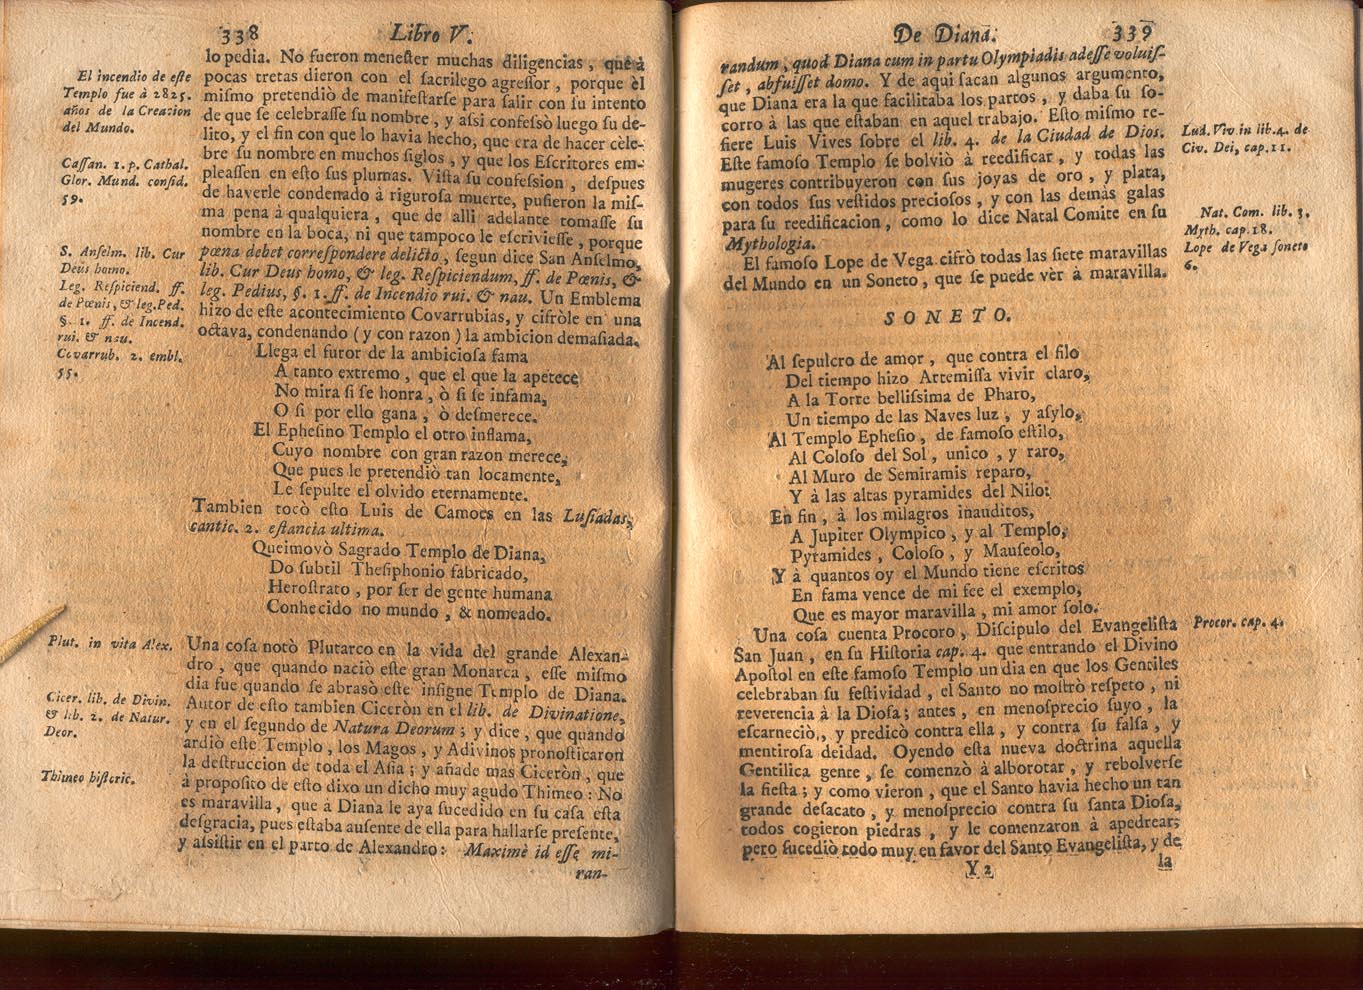 338 Libro V.
lo pedia. No fueron meneſter muchas diligencias, que à
pocas tretas dieron con el ſacrilego agreſſor, porque èl
miſmo pretendiò de manifeſtarſe para ſalir con ſu intento
de que ſe celebraſſe ſu nombre, y aſsi confeſsò luego ſu de-
lito, y el fin con que lo havia hecho, que era de hacer cèle-
bre ſu nombre en muchos ſiglos, y que los Eſcritores em-
pleaſſen en eſto ſus plumas. Viſta ſu confeſsion, deſpues
de haverle condenado à riguroſa muerte, puſieron la miſ-
ma pena à qualquiera, que de alli adelante tomaſſe ſu
nombre en la boca, ni que tampoco le eſcrivieſſe, porque
pœna debet correſpondere delicto, ſegun dice San Anſelmo,
lib. Cur Deus homo, & leg. Reſpiciendum, ff. de Pœnis, &
leg. Pedius, §. 1. ff. de Incendio rui. & nau. Un Emblema
hizo de eſte acontecimiento Covarrubias, y cifròle en una
octava, condenando (y con razon) la ambicion demaſiada.
Llega el furor de la ambicioſa fama
A tanto extremo, que el que la apetece
No mira ſi ſe honra, ò ſi ſe infama,
O ſi por ello gana, ò deſmerece.
El Epheſino Templo el otro inflama,
Cuyo nombre con gran razon merece,
Que pues le pretendiò tan locamente,
Le ſepulte el olvido eternamente.
Tambien tocò eſto Luis de Camoes en las Luſiadas,
cantic. 2. eſtancia ultima.
Queimovò Sagrado Templo de Diana,
Do ſubtil Theſiphonio fabricado,
Heroſtrato, por ſer de gente humana
Conhecido no mundo, & nomeado.
Una coſa notò Plutarco en la vida del grande Alexan-
dro, que quando naciò eſte gran Monarca, eſſe miſmo
dia fue quando ſe abrasò eſte inſigne Templo de Diana.
Autor de eſto tambien Ciceròn en el lib. de Divinatione,
y en el ſegundo de Natura Deorum; y dice, que quando
ardiò eſte Templo, los Magos, y Adivinos pronoſticaron
la deſtruccion de toda el Aſia; y añade mas Ciceròn, que
à propoſito de eſto dixo un dicho muy agudo Thimeo: No
es maravilla, que à Diana le aya ſucedido en ſu caſa eſta
deſgracia, pues eſtaba auſente de ella para hallarſe preſente,
y aſsiſtir en el parto de Alexandro: Maximè id eſſe mi-
ran-
El incendio de eſte
Templo fue à 2825.
años de la Creacion
del Mundo.
Caſſan. 1. p. Cathal.
Glor. Mund. conſid.
59.
S. Anſelm. lib. Cur
Deus homo.
Leg. Reſpiciend. ff.
de Pœnis, & leg. Ped.
§. 1. ff. de Incend.
rui. & nau.
Covarrub. 2. embl.
55.
Plut. in vita Alex.
Cicer. lib. de Divin.
& lib. 2. de Natur.
Deor.
Thimeo hiſtoric.
De Diana. 339
randum, quod Diana cum in partu Olympiadis adeſſe voluiſ-
ſet, abfuiſſet domo. Y de aqui ſacan algunos argumento,
que Diana era la que facilitaba los partos, y daba ſu ſo-
corro à las que eſtaban en aquel trabajo. Eſto miſmo re-
fiere Luis Vives ſobre el lib. 4. de la Ciudad de Dios.
Eſte famoſo Templo ſe bolviò à reedificar, y todas las
mugeres contribuyeron con ſus joyas de oro, y plata,
con todos ſus veſtidos precioſos, y con las demàs galas
para ſu reedificacion, como lo dice Natal Comite en ſu
Mythologia.
El famoſo Lope de Vega cifrò todas las ſiete maravillas
del Mundo en un Soneto, que ſe puede vèr à maravilla.
SONETO.
Al ſepulcro de amor, que contra el filo
Del tiempo hizo Artemiſſa vivir claro,
A la Torre belliſsima de Pharo,
Un tiempo de las Naves luz, y aſylo,
Al Templo Epheſio, de famoſo eſtilo,
Al Coloſo del Sol, unico, y raro,
Al Muro de Semiramis reparo,
Y à las altas pyramides del Nilo:
En fin, à los milagros inauditos,
A Jupiter Olympico, y al Templo,
Pyramides, Coloſo, y Mauſeolo,
Y à quantos oy el Mundo tiene eſcritos
En fama vence de mi fee el exemplo,
Que es mayor maravilla, mi amor ſolo.
Una coſa cuenta Procoro, Diſcipulo del Evangeliſta
San Juan, en ſu Hiſtoria cap. 4. que entrando el Divino
Apoſtol en eſte famoſo Templo un dia en que los Gentiles
celebraban ſu feſtividad, el Santo no moſtrò reſpeto, ni
reverencia à la Dioſa; antes, en menoſprecio ſuyo, la
eſcarneciò, y predicò contra ella, y contra ſu falſa, y
mentiroſa deidad. Oyendo eſta nueva doctrina aquella
Gentilica gente, ſe comenzò à alborotar, y rebolverſe
la fieſta; y como vieron, que el Santo havia hecho un tan
grande deſacato, y menoſprecio contra ſu ſanta Dioſa,
todos cogieron piedras, y le comenzaron à apedrear;
pero ſucediò todo muy en favor del Santo Evangeliſta, y de
Y 2 la
Lud. Viv in lib. 4. de
Civ. Dei, cap. 11.
Nat. Com. lib. 3.
Myth. cap. 18.
Lope de Vega ſoneto
6.
Procor. cap. 4.